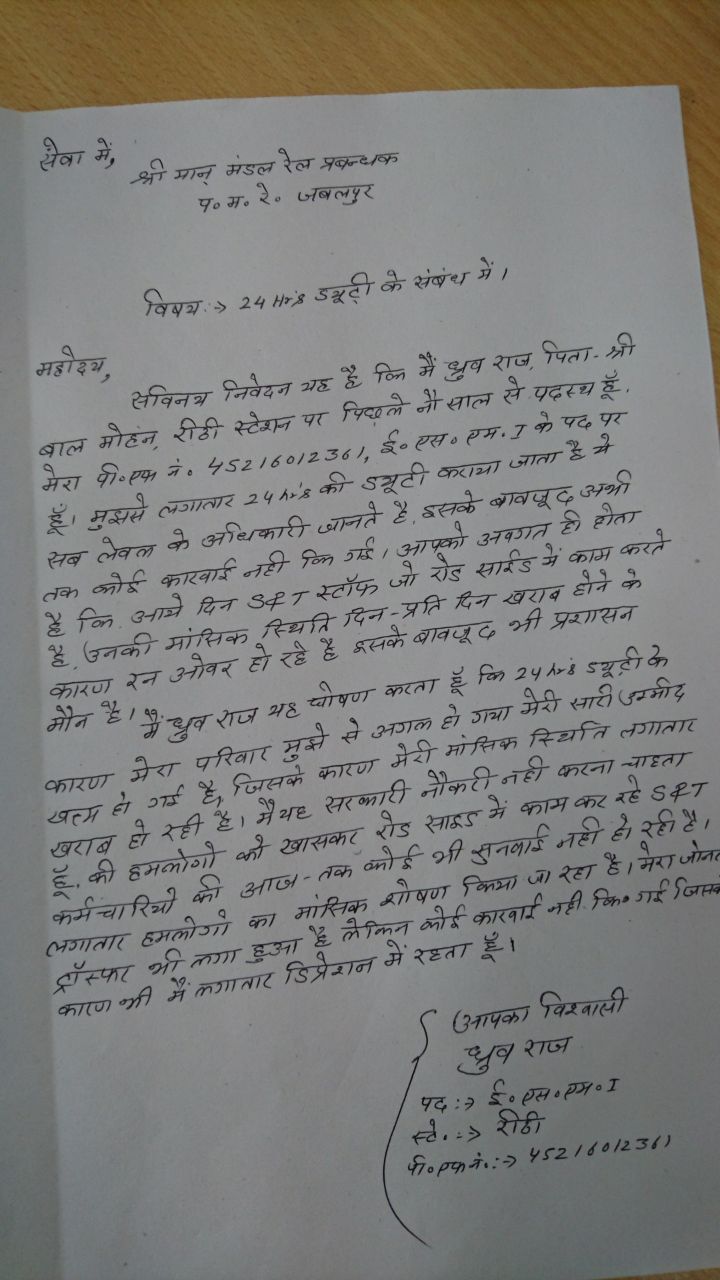 सेवा में,
श्री मान् मंडल रेल प्रबन्धक
प॰ म॰ रे॰ जबलपुर
विषय :→ 24 Hr's ड्यूटी के संबंध में।
महोदय,
सविनय निवेदन यह है कि मैं ध्रुव राज, पिता - श्री
बाल मोहन, रीठी स्टेशन पर पिछले नौ साल से पदस्थ हूँ,
मेरा पी॰ एफ नं॰ 45216012361, ई॰ एस॰ एम॰ I के पद पर
हूँ। मुझसे लगातार 24 hr's की ड्यूटी कराया जाता है ये
सब लेवल के अधिकारी जानते है, इसके बावजूद अभी
तक कोई कारवाई नही कि गई। आपको अवगत ही होता
है कि आये दिन S&T स्टॉफ जो रोड साईड में काम करते
है, उनकी मांसिक स्थिति दिन-प्रति दिन खराब होने के
कारण रन ओवर हो रहे है इसके बावजूद भी प्रशासन
मौन है। मैं ध्रुव राज यह घोषण करता हूँ कि 24 hr's ड्यूटी के
कारण मेरा परिवार मुझे से अगल हो गया मेरी सारी उम्मीद
खत्म हो गई है, जिसके कारण मेरी मांसिक स्थिति लगातार
खराब हो रही है। मै यह सरकारी नौकरी नही करना चाहता
हूँ, की हमलोगो को खासकर रोड साइड में काम कर रहे S&T
कर्मचारियो की आज-तक कोई भी सुनवाई नही हो रही है।
लगातार हमलोगो का मांसिक शोषण किया जा रहा है। मेरा जोनल
ट्राँस्फर भी लगा हुआ है लेकिन कोई कारवाई नही कि॰ गई जिसके
कारण भी मैं लगातार डिप्रेशन में रहता हूँ।
आपका विश्वासी
ध्रुव राज
पद :→ ई॰ एस॰ एम॰ I
स्टे॰ :→ रीठी
पी॰ एफ नं॰ :→ 45216012361